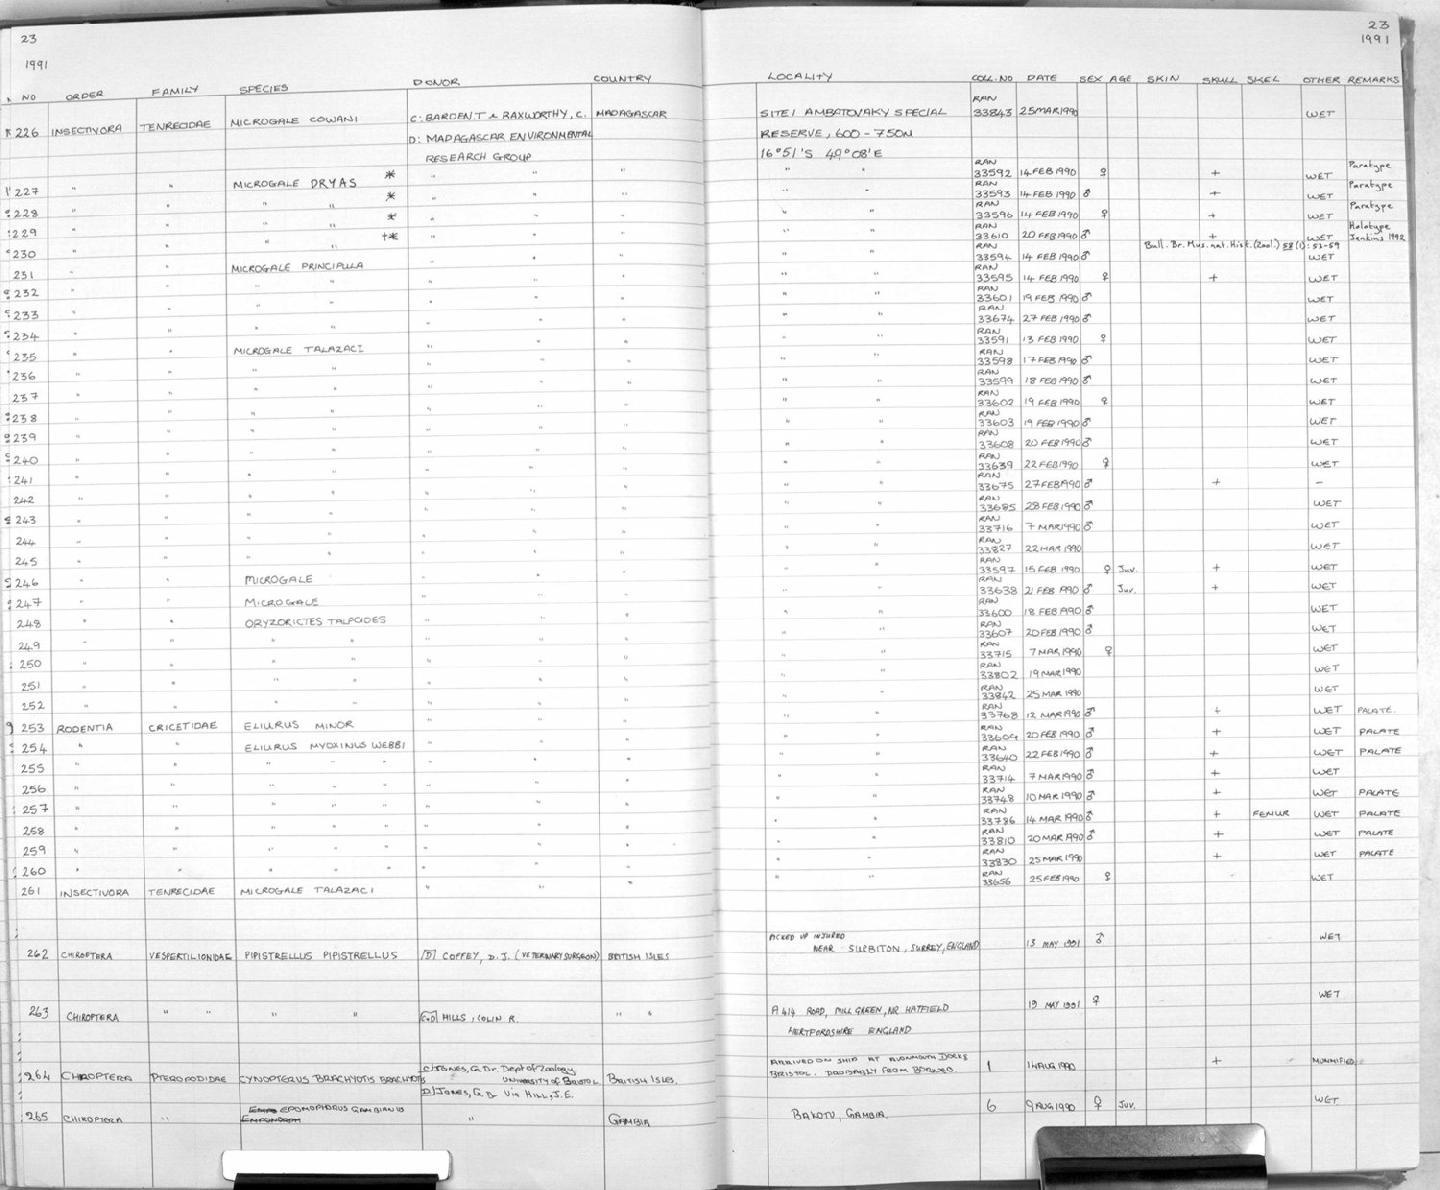 23
1991
23
1991
NO ORDER FAMILY SPECIES DONOR COUNTRY LOCALITY COLL.NO DATE SEX AGE SKIN SKULL SKEL OTHER REMARKS
226 INSECTIVORA TENRECIDAE MICROGALE COWANI C: BARDEN T & RAXWORTHY, C. MADAGASCAR SITE 1 AMBATOVAKY SPECIAL RAN 33843 25 MAR 1990 WET
D: MADAGASCAR ENVIRONMENTAL RESERVE, 600-750M
RESEARCH GROUP 16°51'S 49°08'E
227 " " MICROGALE DRYAS * " " " " " RAN 33592 14 FEB 1990 ♀ + WET Paratype
228 " " " " * " " " " " RAN 33593 14 FEB 1990 ♂ + WET Paratype
229 " " " " * " " " " " RAN 33596 14 FEB 1990 ♀ + WET Paratype
230 " " " " +* " " " " " RAN 33610 20 FEB 1990 ♂ + WET Holotype Jenkins 1992
Bull. Br. Mus. nat. Hist. (Zool.) 58 (1): 53-59
231 " " MICROGALE PRINCIPULA " " " " " RAN 33594 14 FEB 1990 ♂ WET
232 " " " " " " " " " RAN 33595 14 FEB 1990 ♀ + WET
233 " " " " " " " " " RAN 33601 19 FEB 1990 ♂ WET
234 " " " " " " " " " RAN 33674 27 FEB 1990 ♂ WET
235 " " MICROGALE TALAZACI " " " " " RAN 33591 13 FEB 1990 ♀ WET
236 " " " " " " " " " RAN 33598 17 FEB 1990 ♂ WET
237 " " " " " " " " " RAN 33599 18 FEB 1990 ♂ WET
238 " " " " " " " " " RAN 33602 19 FEB 1990 ♀ WET
239 " " " " " " " " " RAN 33603 19 FEB 1990 ♂ WET
240 " " " " " " " " " RAN 33608 20 FEB 1990 ♂ WET
241 " " " " " " " " " RAN 33639 22 FEB 1990 ♀ WET
242 " " " " " " " " " RAN 33675 27 FEB 1990 ♂ + -
243 " " " " " " " " " RAN 33685 28 FEB 1990 ♂ WET
244 " " " " " " " " " RAN 33716 7 MAR 1990 ♂ WET
245 " " " " " " " " " RAN 33827 22 MAR 1990 WET
246 " " MICROGALE " " " " " RAN 33597 15 FEB 1990 ♀ Juv. + WET
247 " " MICROGALE " " " " " RAN 33638 21 FEB 1990 ♂ Juv. + WET
248 " " ORYZORICTES TALPOIDES " " " " " RAN 33600 18 FEB 1990 ♂ WET
249 " " " " " " " " " RAN 33607 20 FEB 1990 ♂ WET
250 " " " " " " " " " RAN 33715 7 MAR 1990 ♀ WET
251 " " " " " " " " " RAN 33802 19 MAR 1990 WET
252 " " " " " " " " " RAN 33842 25 MAR 1990 WET
253 RODENTIA CRICETIDAE ELIURUS MINOR " " " " " RAN 33768 12 MAR 1990 ♂ + WET PALATE.
254 " " ELIURUS MYOXINUS WEBBI " " " " " RAN 33609 20 FEB 1990 ♂ + WET PALATE
255 " " " " " " " " " " RAN 33640 22 FEB 1990 ♂ + WET PALATE
256 " " " " " " " " " " RAN 33714 7 MAR 1990 ♂ + WET
257 " " " " " " " " " " RAN 33748 10 MAR 1990 ♂ + WET PALATE
258 " " " " " " " " " " RAN 33786 14 MAR 1990 ♂ + FEMUR WET PALATE
259 " " " " " " " " " " RAN 33810 20 MAR 1990 ♂ + WET PALATE
260 " " " " " " " " " " RAN 33830 23 MAR 1990 + WET PALATE
261 INSECTIVORA TENRECIDAE MICROGALE TALAZACI " " " " " RAN 33656 25 FEB 1990 ♀ WET
PICKED UP INJURED
262 CHIROPTERA VESPERTILIONDAE PIPISTRELLUS PIPISTRELLUS [D] COFFEY, D.J. (VETERINARY SURGEON) BRITISH ISLES NEAR SURBITON, SURREY, ENGLAND 13 MAY 1991 ♂ WET
263 CHIROPTERA " " " " [C+D] HILLS, COLIN R. " " A414 ROAD, MILL GREEN, NR HATFIELD 19 MAY 1991 ♀ WET
HERTFORDSHIRE ENGLAND
264 CHIROPTERA PTEROPODIDAE CYNOPTERUS BRACHYOTIS BRACHYOTIS C) JONES, G. Dr. Dept of Zoology, UNIVERSITY OF BRISTOL BRITISH ISLES. ARRIVED ON SHIP AT AVONMOUTH DOCKS 1 14 AUG 1990 + MUMMIFIED
D) JONES, G. Dr Via HILL, J.E. BRISTOL. POSSIBLY FROM BORNEO.
265 CHIROPTERA " EPOMOPHORUS GAMBIANUS " GAMBIA BAKOTU, GAMBIA. 6 9 AUG 1990 ♀ Juv. WET